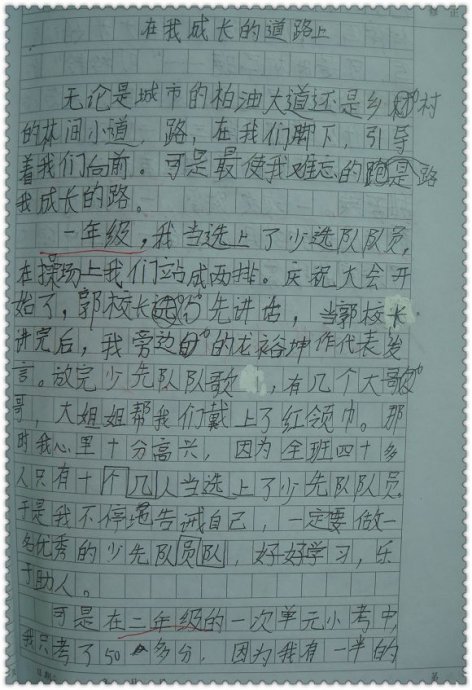 在我成长的道路上
无论是城市的柏油大道还是乡村
的林间小道，路，在我们脚下，引导
着我们向前。可是最使我难忘的是路
我成长的路。
一年级，我当选上了少选队队员，
在操场上我们站成两排。庆祝大会开
始了，郭校长先讲话，当郭校长
讲完后，我旁边的龙裕坤作代表发
言。放完少先队队歌，有几个大哥
哥，大姐姐帮我们戴上了红领巾。那
时我心里十分高兴，因为全班四十多
人只有十个几人当选上了少先队队员。
于是我不停地告诫自己，一定要做一
名优秀的少先队员队，好好学习，乐
于助人。
可是在二年级的一次单元小考中，
我只考了50多分，因为我有一半的